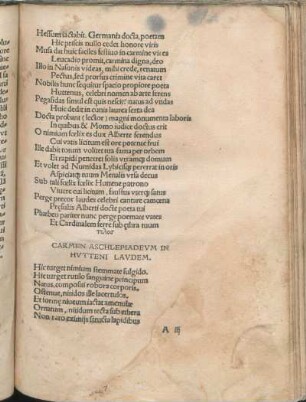 Hessum iactabit. Germania docta poetam
Hic prisco nullo cedet honore viris
Musa dat huic faciles festiuo in carmine vires
Leucadio promit carmina digna deo
Illo in Nasonis videas, mihi crede, renatum
Pectus, sed prorsus crimine vita caret
Nobilis hunc sequitur spacio propiore poeta
Huttenus, celebri nomen ab arte ferens
Pegasidas simul est quis nescit natus ad vndas
Huic dedit in cunis laurea serta dea
Docta probant (lector) magni monumenta laboris
In quibus & Momo iudice doctus erit
O nimium foelix es dux Alberte ferendus
Cui vatis licitum est ore
Ille dabit totum volitentus fama per orbem
Et rapidi penetret solis vtramque domum
Et volet ad Numidas Lybicisque pererret in oris
Aspiciatque nitens Menalis vrsa decus
Sub tali foelix foelix Huttene patrono
Viuere cui licitum,
Perge precor laudes celebri cantare camena
Presulis Alberti docte poeta tui
Phoebeo pariter nunc perge poemate vates
Et Cardinalem ferre sub astra tuum
CARMEN ASCHLEPIADEVM IN
HVTTENI LAVDEM.
Hic turget nimium stemmate fulgido.
Hic turget rutilo sanguine principum
Natus, compositi robora corporis,
Ostentat, nitidos ille lacertulos,
Et formę niueum iactat amenulę
Ornatum, nitidum tecta sub ethera
Non raro eximijs structa lapidibus
A iij